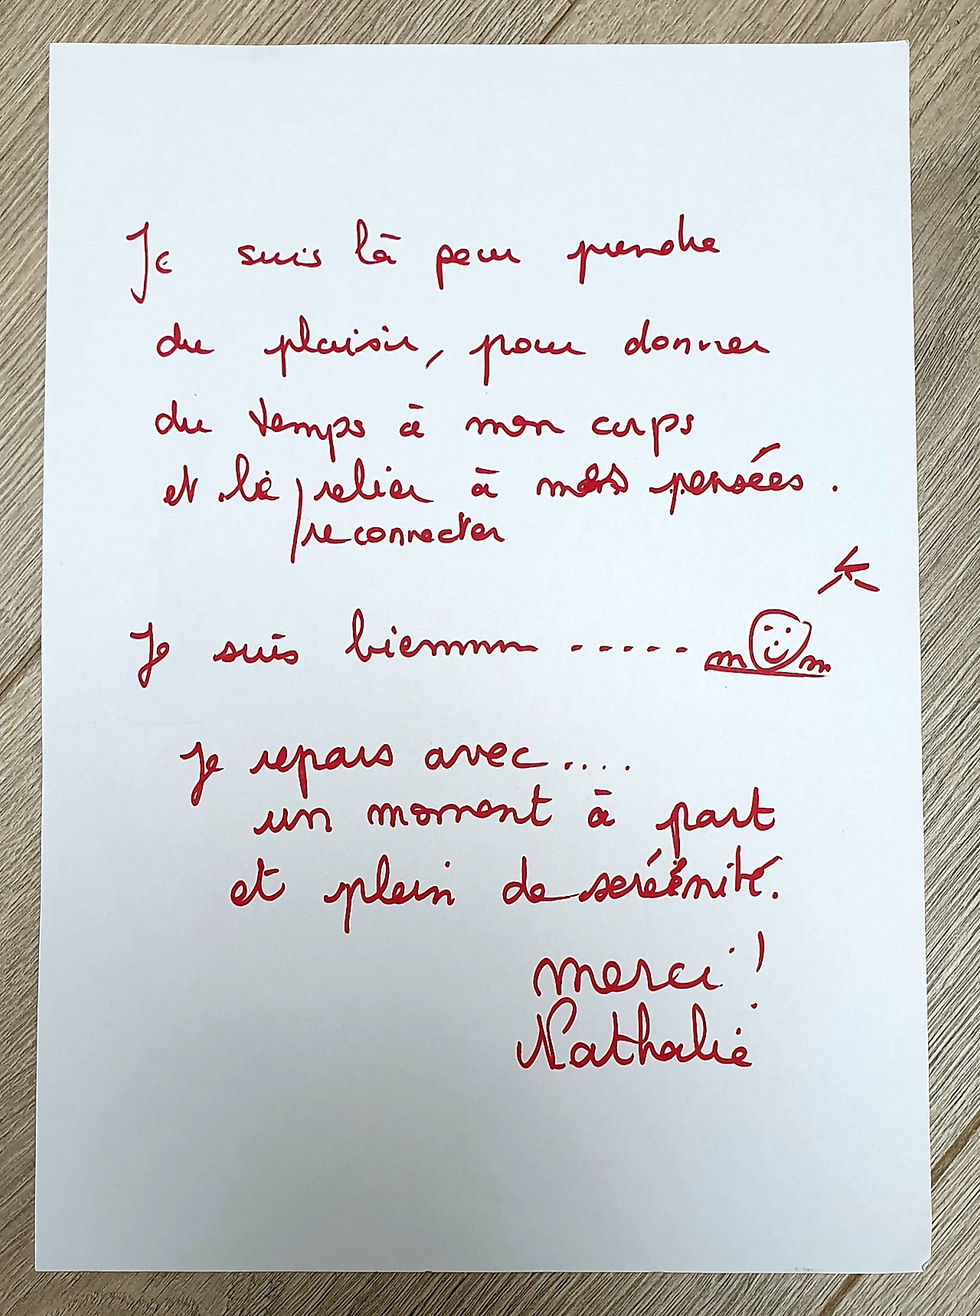 Je suis là pour prendre
du plaisir, pour donner
du temps à mon corps
et le relier à mes pensées.
reconnecter
Je suis biennnn .....
Je repars avec....
un moment à part
et plein de sérénité.
merci !
Nathalie